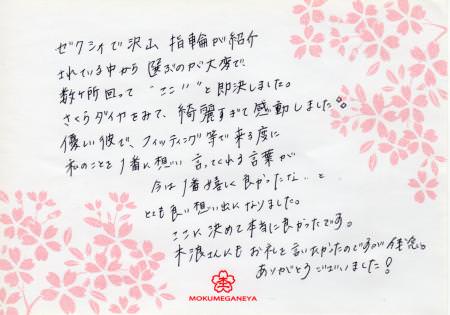 ゼクシィで沢山 指輪が紹介
されている中から 選ぶのが大変で、
数ヶ所回って “ここ!!” と即決しました。
さくらダイヤをみて、綺麗すぎて感動しました
優しい彼で、フィッティング等で来る度に
私のことを1番に想い 言ってくれる言葉が
今は1番嬉しく 良かったな‥と
とても良い想い出になりました。
ここに決めて本当に良かったです。
木浪さんにも お礼を言いたかったのですが 残念。
ありがとうございました!
MOKUMEGANEYA